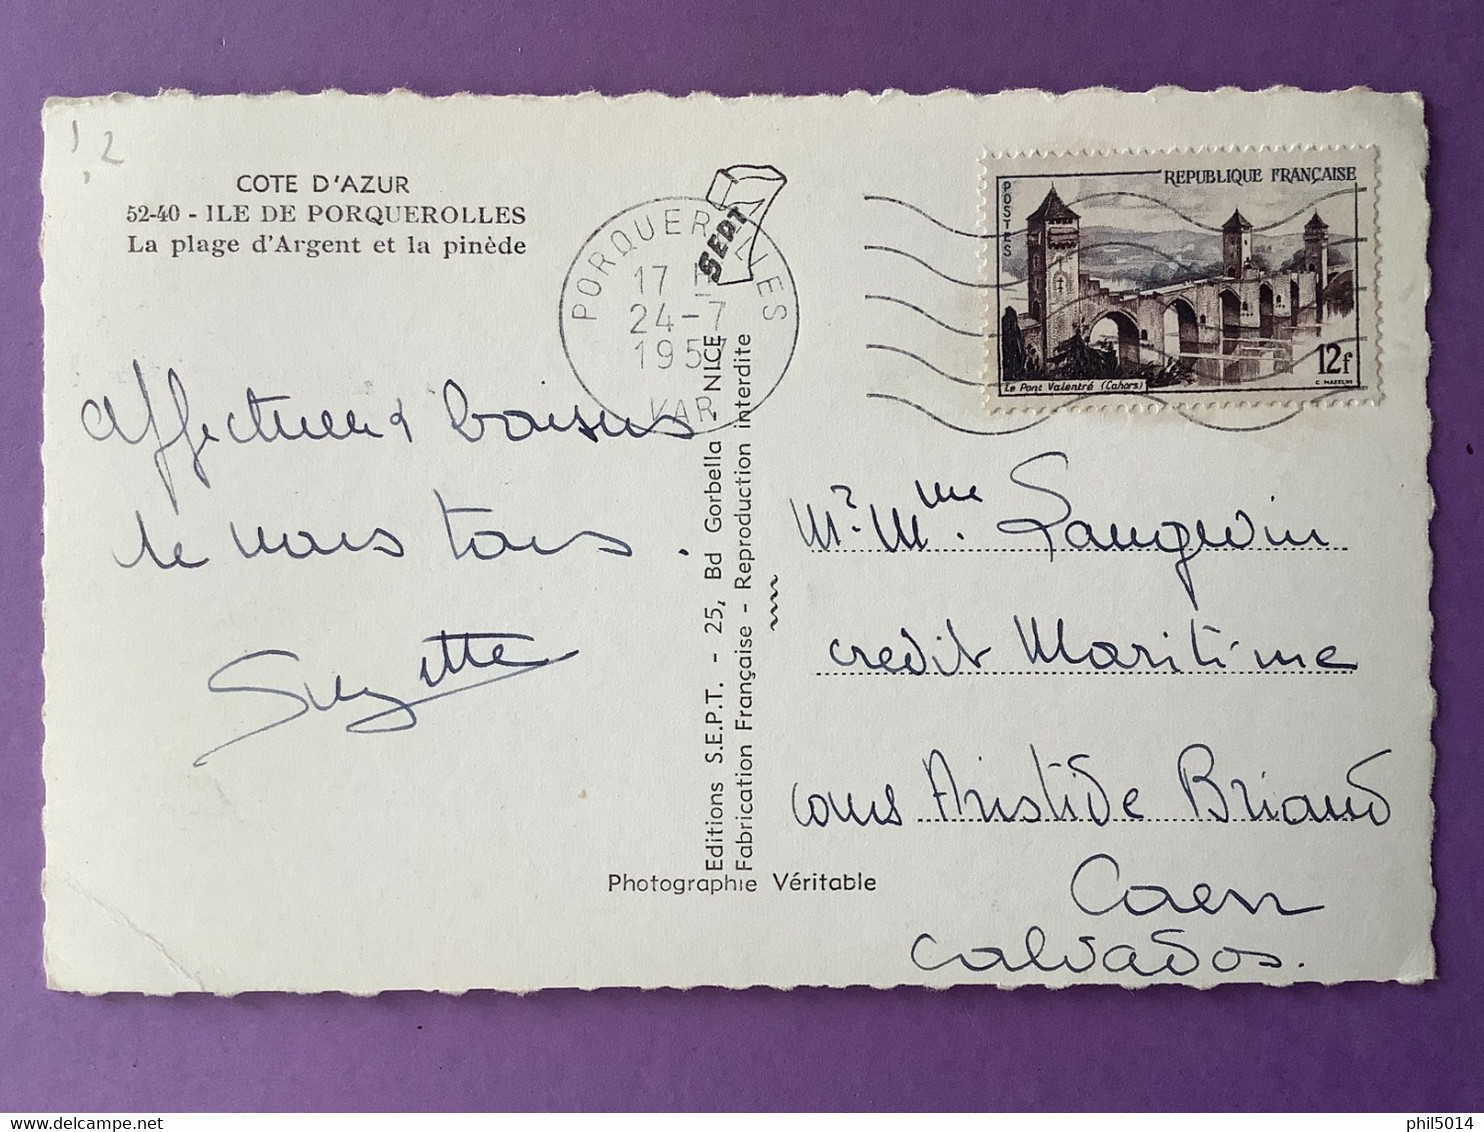 ! 2
COTE D'AZUR
52-40 - ILE DE PORQUEROLLES
La plage d'Argent et la pinède
PORQUEROLLES
17
24-7
1957
VAR
7
SEPT
REPUBLIQUE FRANÇAISE
POSTES
Le Pont Valentré (Cahors)
12f
C. MAZELIN
affectueux baisers
de nous tous.
Suzette
Editions S.E.P.T. - 25, Bd Gorbella - NICE
Fabrication Française - Reproduction interdite
Photographie Véritable
Mr. Mme. Langevin
credit Maritime
cours Aristide Briand
Caen
Calvados.
phil5014